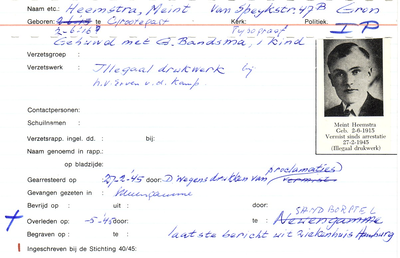 Naam etc: Heemstra, Meint van Speykstr. 47B Gron
Geboren: te Grootegast Kerk: Politiek:
2-6-15 Typograaf I P
Gehuwd met G. Bandsma, 1 kind
Verzetsgroep :
Verzetswerk : Illegaal drukwerk bij
h. v. Erven v. d. Kamp.
Contactpersonen:
Schuilnamen :
Verzetsrapp. ingel. dd. : bij:
Naam genoemd in rapp.:
op bladzijde:
Meint Heemstra
Geb. 2-6-1915
Vermist sinds arrestatie
27-2-1945
(Illegaal drukwerk)
proclamaties
Gearresteerd op : 27-2-'45 door: D wegens drukken van vermist
Gevangen gezeten in :
Bevrijd op : uit : door:
SANDBORSTEL
Overleden op : -5-'45 door: te : Neuengamme
Begraven op : te : laatste bericht uit Ziekenhuis Hamburg
Ingeschreven bij de Stichting 40/45: